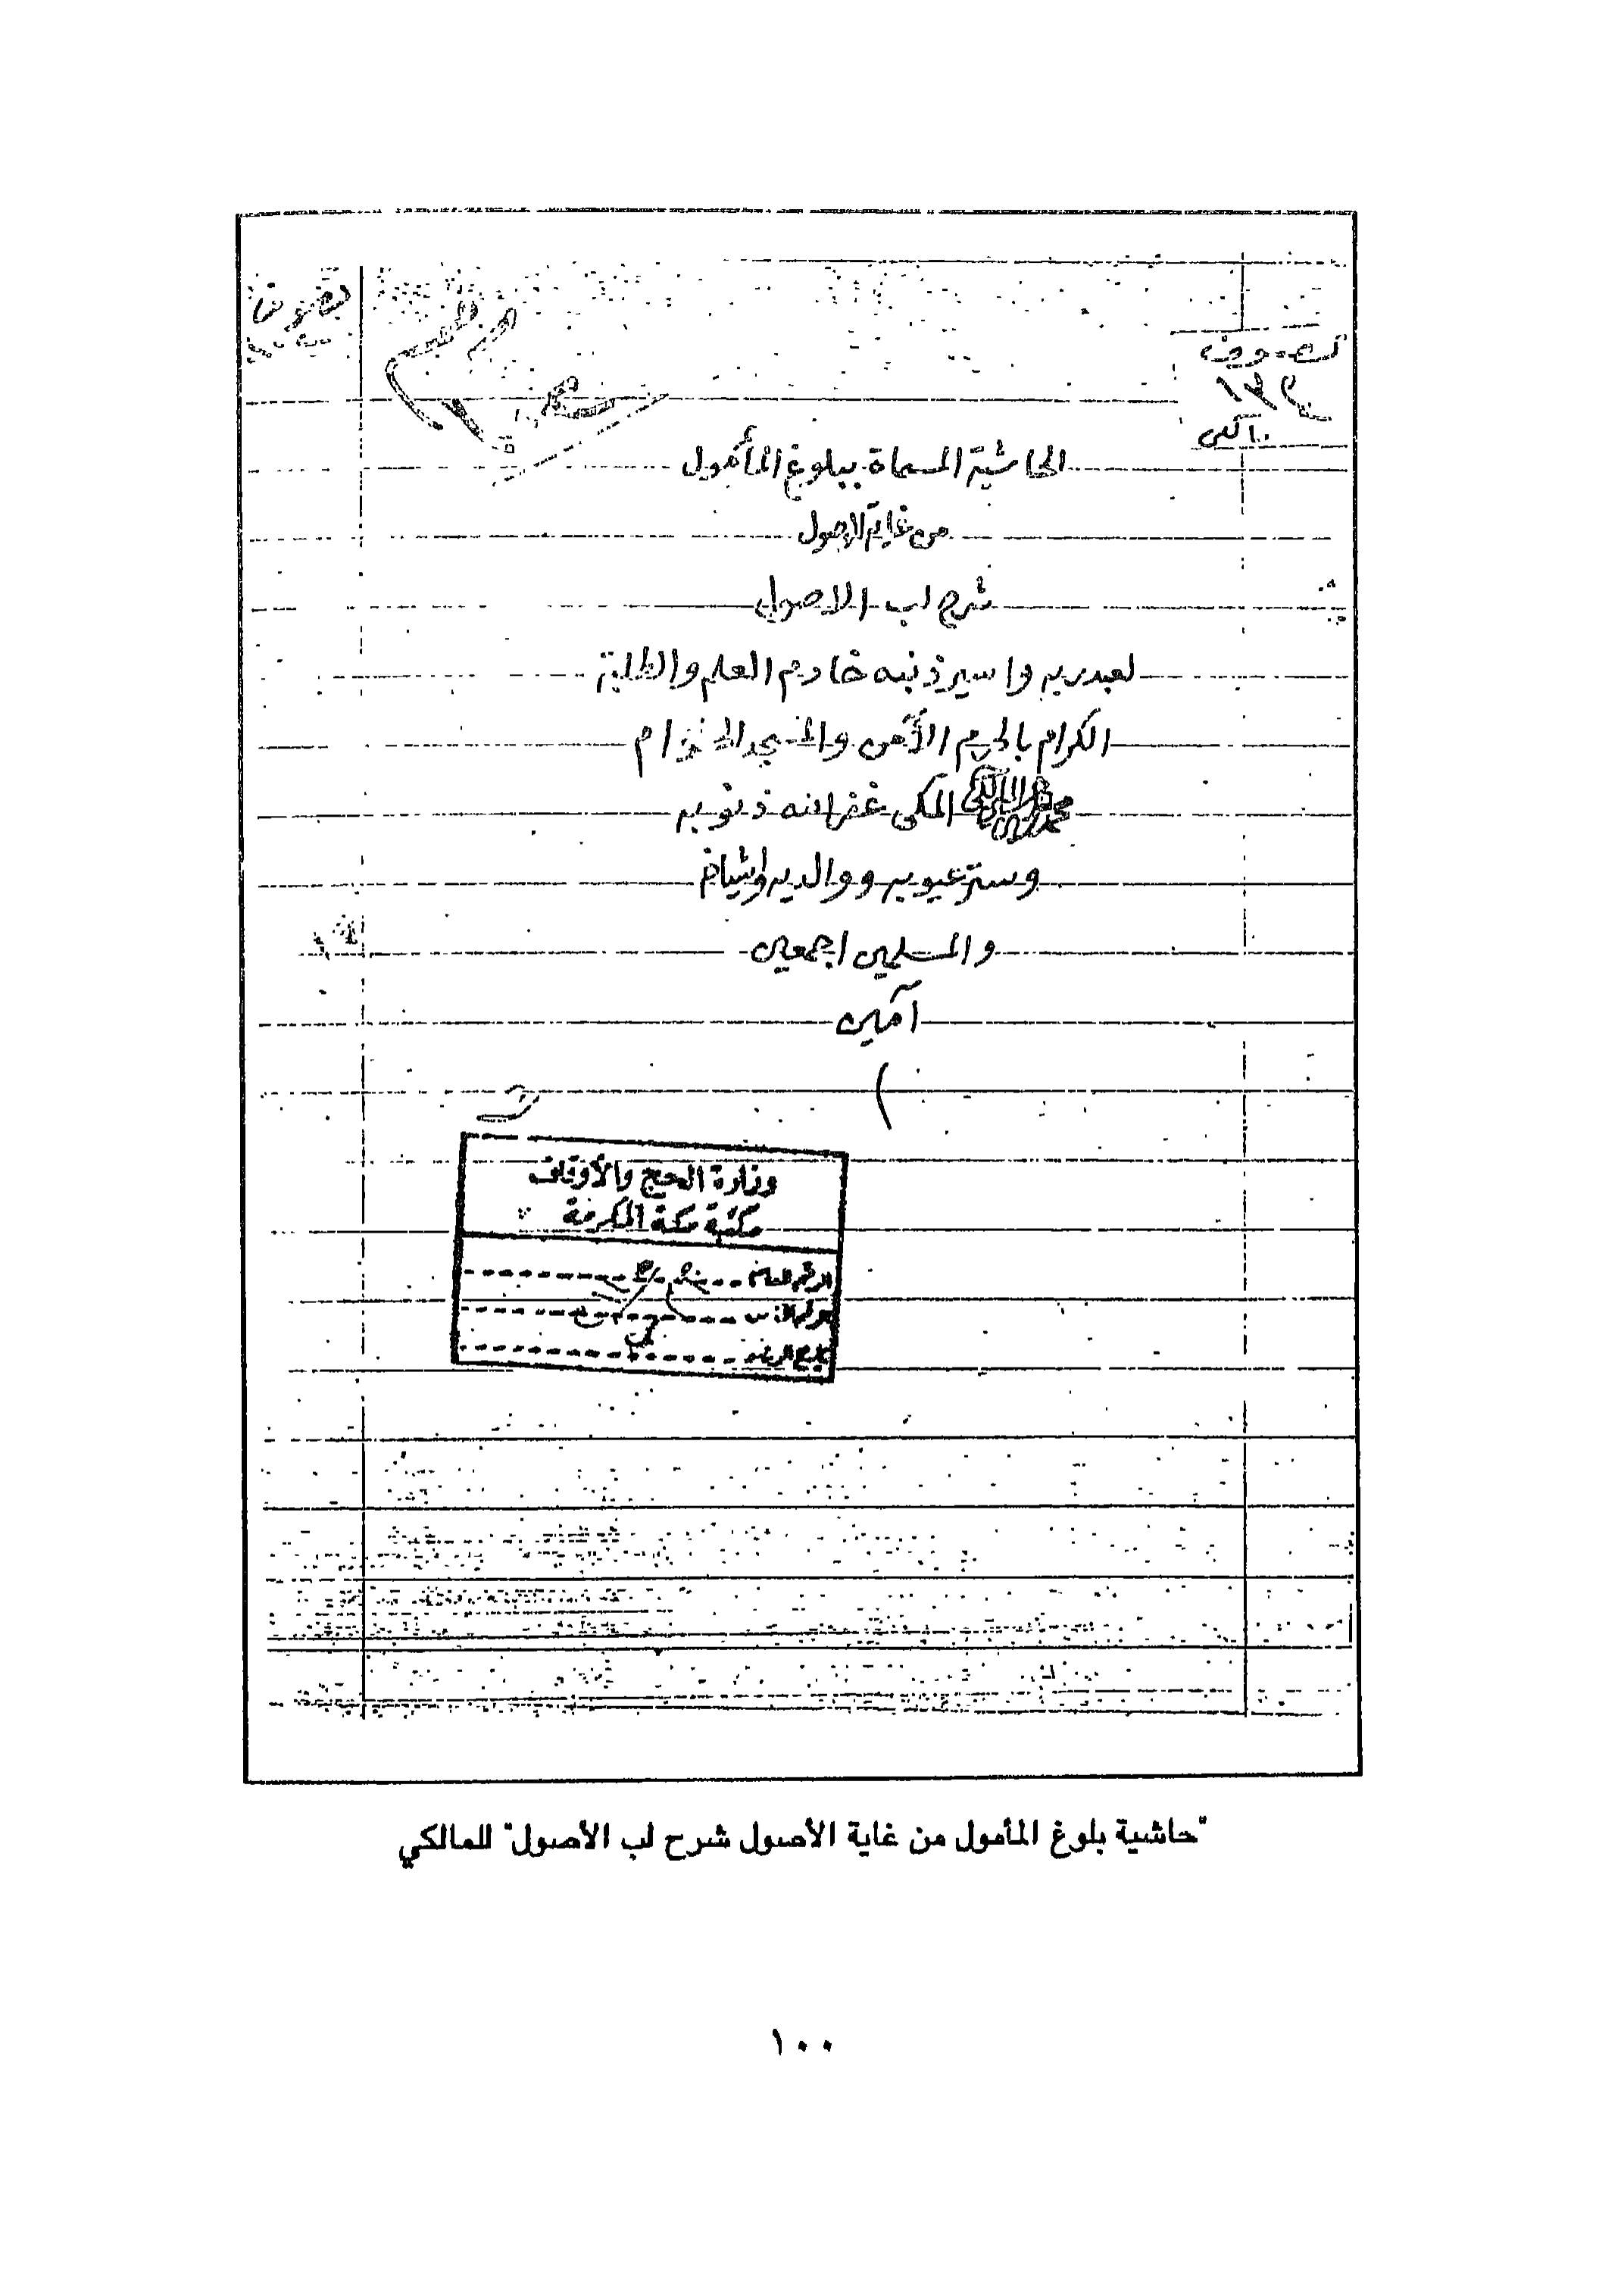 تصوف
١٣٢
الحاشية المسماة ببلوغ المأمول
من غاية الاصول
شرح لب الاصول
لعبد ربه واسير ذنبه خادم العلم والطلبة
الكرام بالحرم الأمن والمسجد الحرام
المكى غفر الله ذنوبه
وستر عيوبه ووالديه واشياخه
والمسلمين اجمعين
آمين
وزارة الحج والأوقاف
مكتبة مكة المكرمة
الرقم العام
"حاشية بلوغ المأمول من غاية الأصول شرح لب الأصول" للمالكي
١٠٠